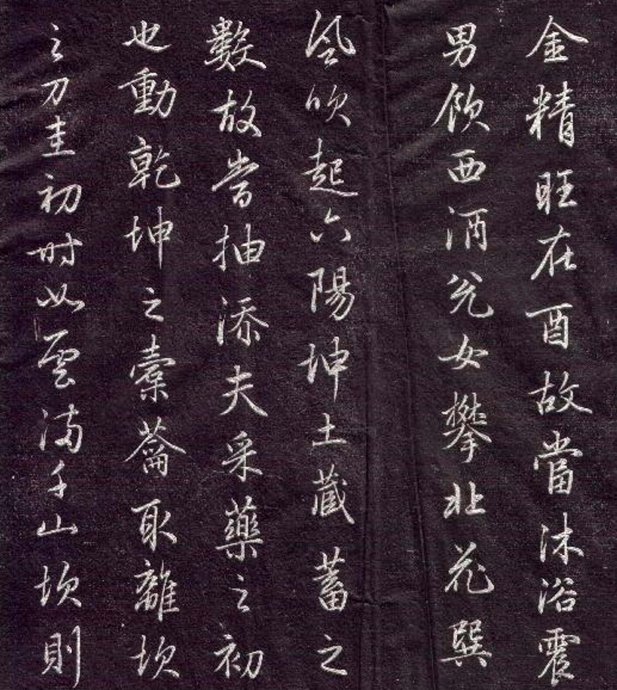 金精旺在酉故當沐浴震
男飲西酒兌女攀北花巽
風吹起六陽坤土藏蓄之
數故當抽添夫采藥之初
也動乾坤之橐籥取離坎
之刀圭初時如雲滿千山坎則